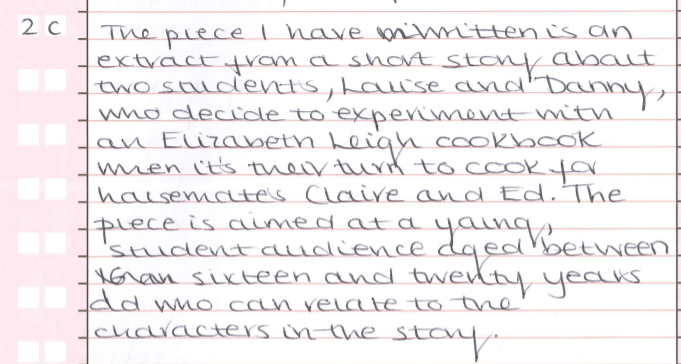 2 C The piece I have written is an
extract from a short story about
two students, Louise and Danny,
who decide to experiment with
an Elizabeth Leigh cookbook
when it's their turn to cook for
housemates Claire and Ed. The
piece is aimed at a young,
student audience aged between
sixteen and twenty years
old who can relate to the
characters in the story.